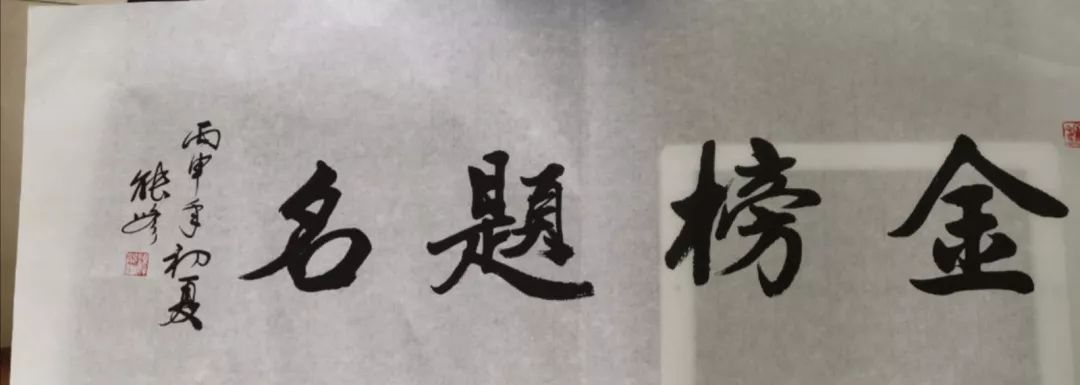 金榜题名
丙申年初夏
能峰